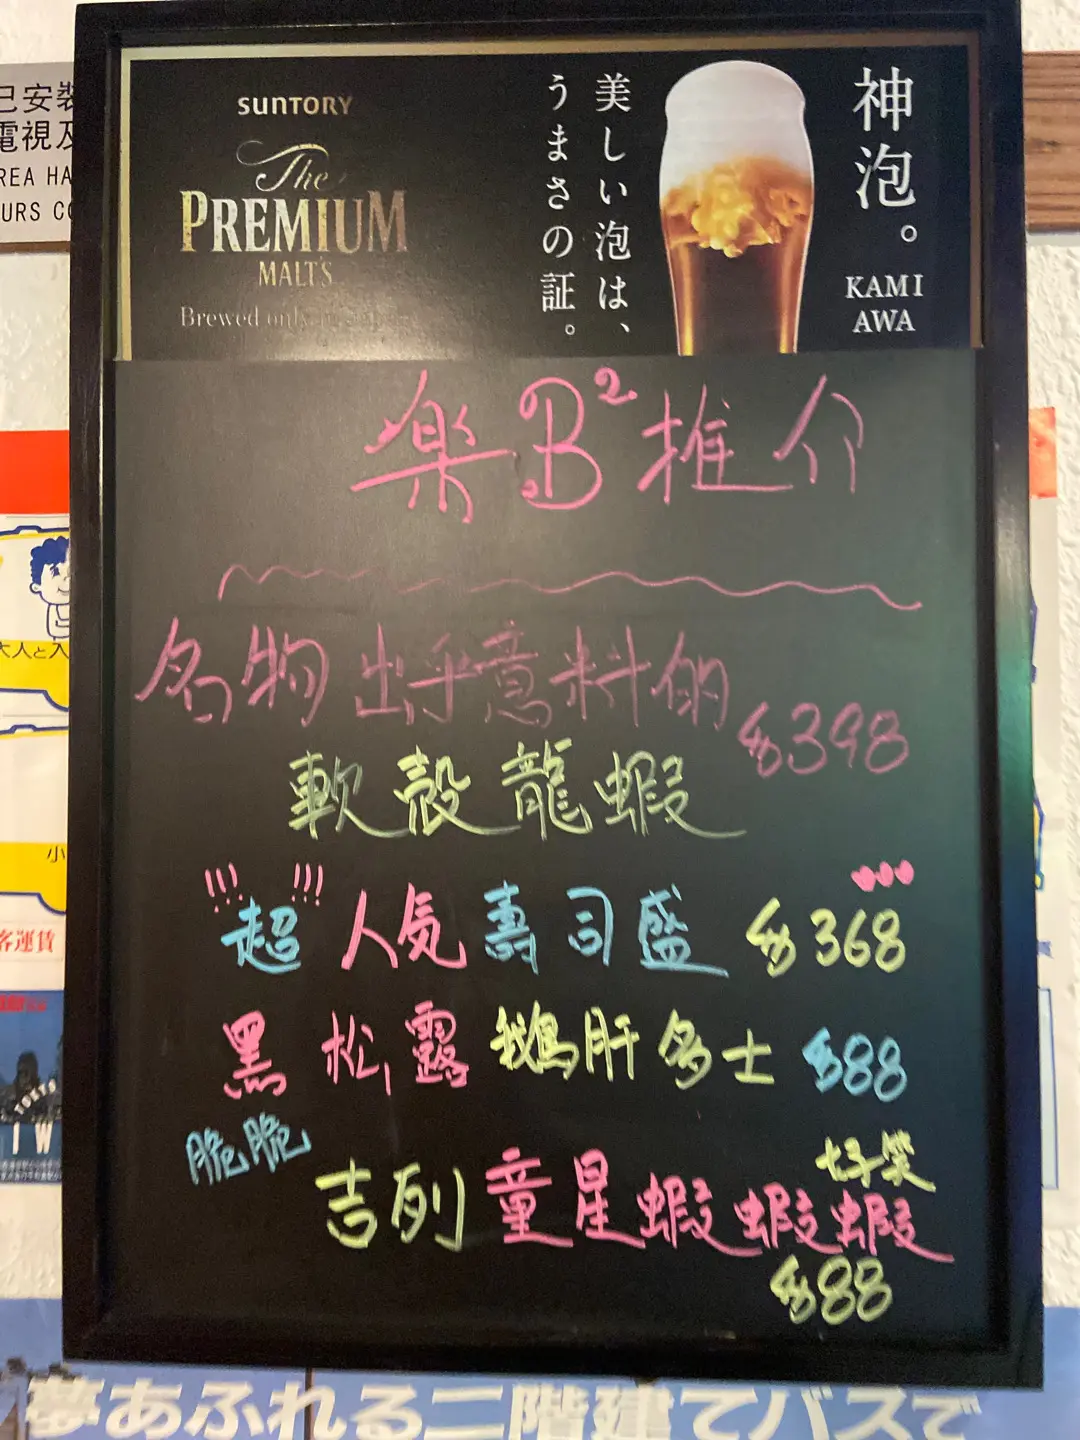 已安裝
電視及
REA HA
URS CO
SUNTORY
The
PREMIUM
MALT'S
Brewed only
美しい泡は、
うまさの証。
神泡。
KAMI
AWA
楽B²推介
名物出乎意料的 $398
軟殼龍蝦
!!! 超 !!! 人気壽司盛 $368
黑松露鵝肝多士 $88
脆脆
好笑
吉列童星蝦蝦蝦
$88
大人と入
小
客運賃
I W
夢あふれる二階建てバスで